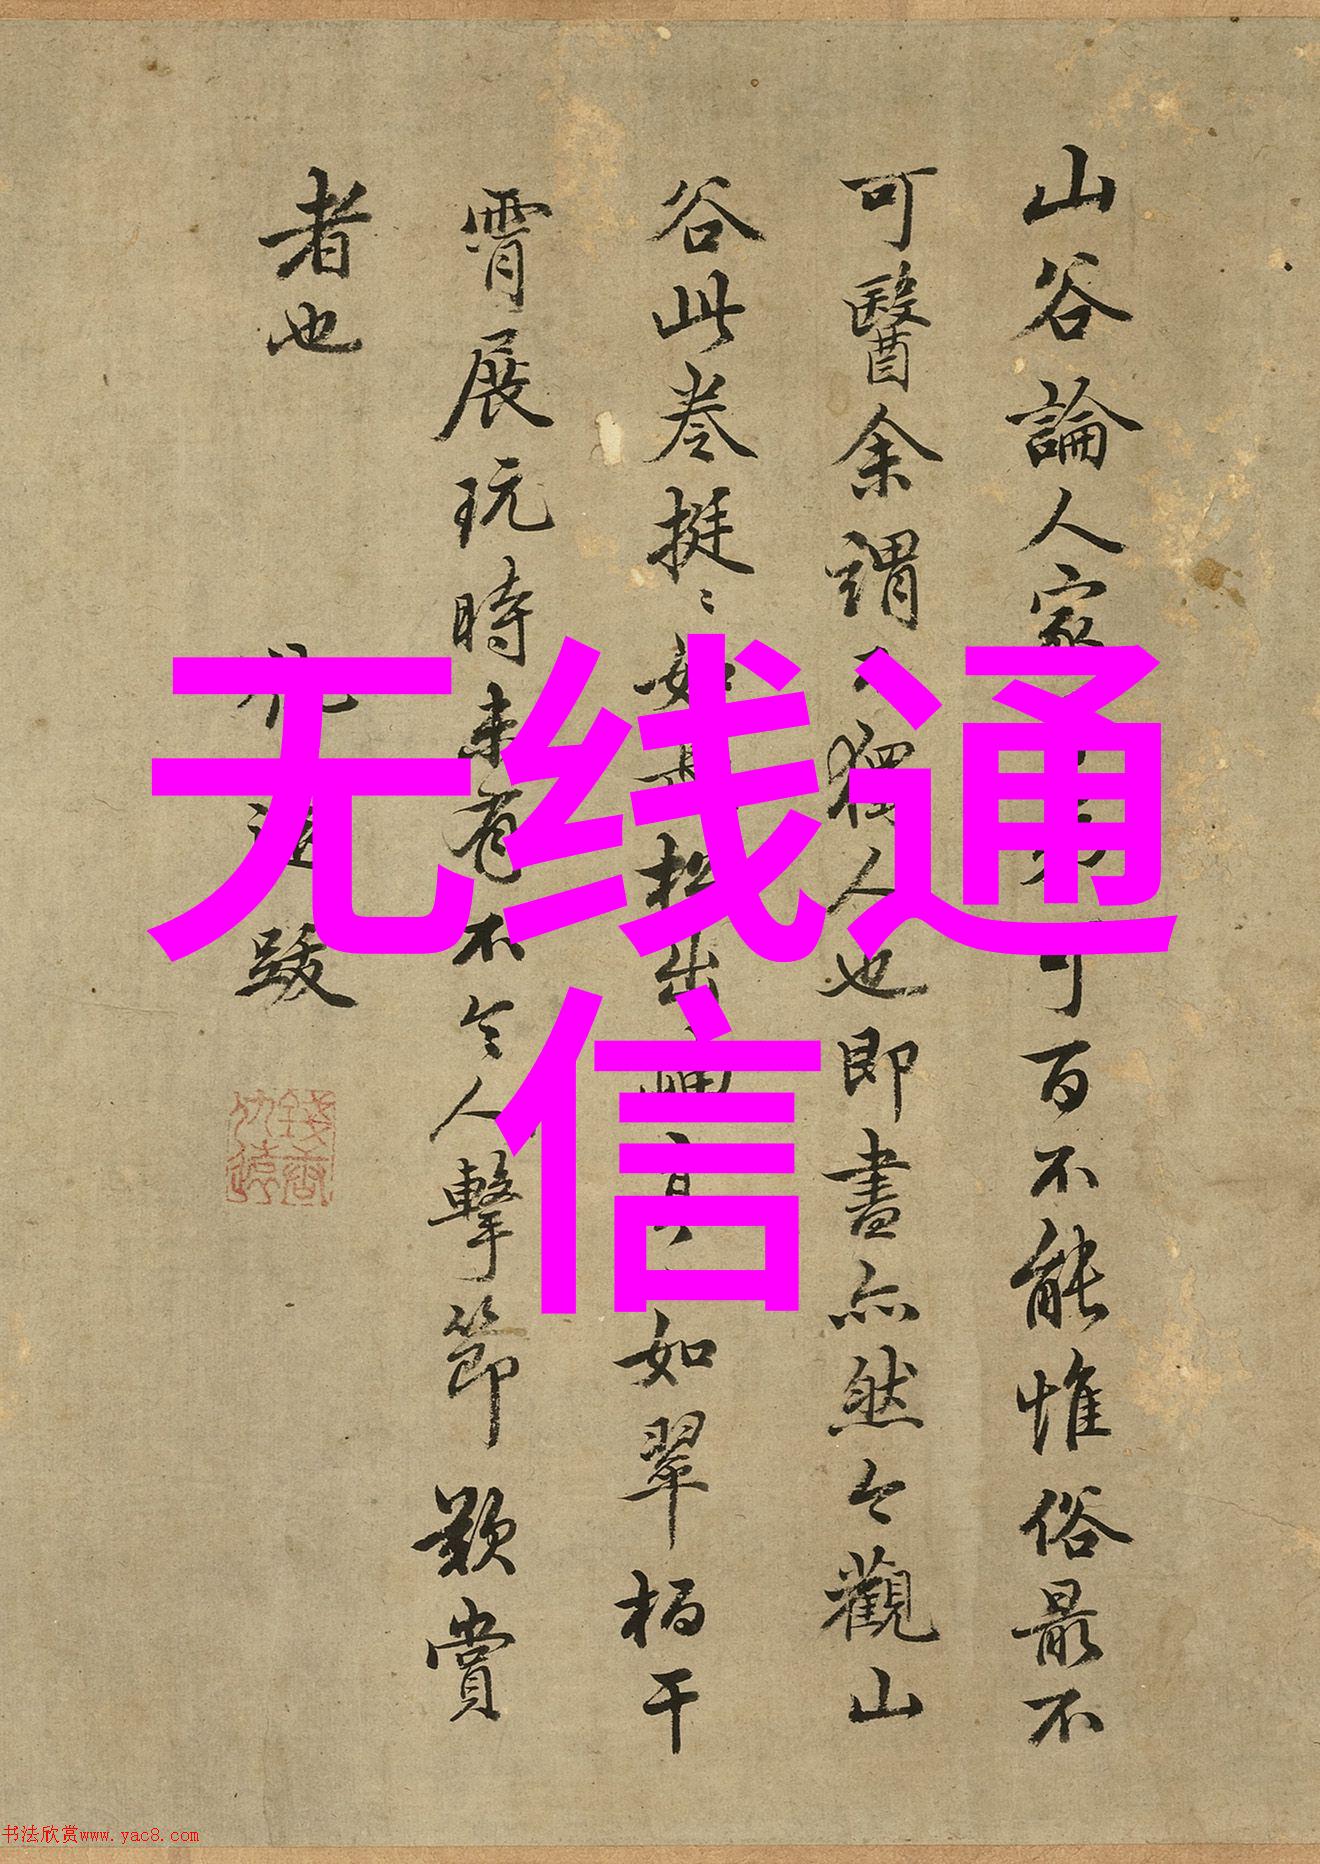 山谷論人家
可百不能惟俗最不
可醫余謂
獨人也即書亦然今觀山
谷此卷挺〻如
松出
如翠柏干
霄展玩時未有不令人擊節歎賞
者也
跋
无线通
信
书法欣赏www.yac8.com